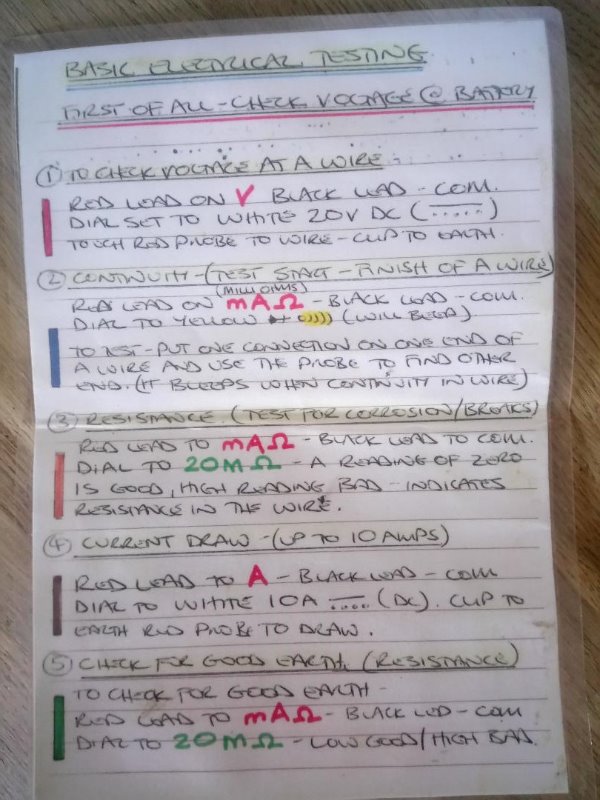 BASIC ELECTRICAL TESTING
FIRST OF ALL - CHECK VOLTAGE @ BATTERY
① TO CHECK VOLTAGE AT A WIRE -
RED LEAD ON V BLACK LEAD - COM.
DIAL SET TO WHITE 20V DC ( ⎓ )
TOUCH RED PROBE TO WIRE - CLIP TO EARTH.
② CONTINUITY - (TEST START - FINISH OF A WIRE)
(MILLI OHMS)
RED LEAD ON mAΩ - BLACK LEAD - COM.
DIAL TO YELLOW o)))) (WILL BLEEP)
TO TEST - PUT ONE CONNECTION ON ONE END OF
A WIRE AND USE THE PROBE TO FIND OTHER
END. (IT BLEEPS WHEN CONTINUITY IN WIRE)
③ RESISTANCE. (TEST FOR CORROSION/BREAKS)
RED LEAD TO mAΩ - BLACK LEAD TO COM.
DIAL TO 20MΩ - A READING OF ZERO
IS GOOD, HIGH READING BAD - INDICATES
RESISTANCE IN THE WIRE.
④ CURRENT DRAW - (UP TO 10 AMPS)
RED LEAD TO A - BLACK LEAD - COM
DIAL TO WHITE 10A ⎓ (DC). CLIP TO
EARTH RED PROBE TO DRAW.
⑤ CHECK FOR GOOD EARTH. (RESISTANCE)
TO CHECK FOR GOOD EARTH -
RED LEAD TO mAΩ - BLACK LED - COM
DIAL TO 20MΩ - LOW GOOD/HIGH BAD.